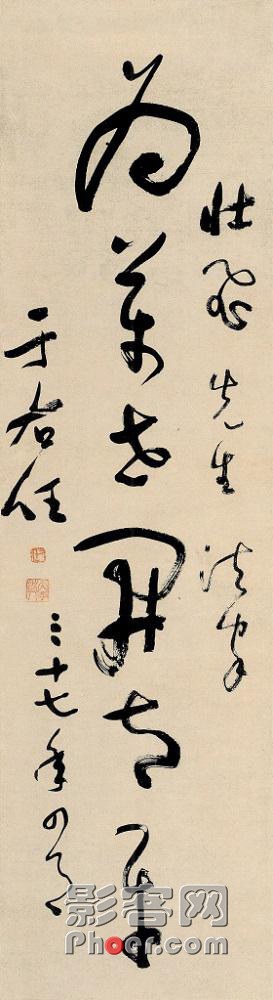 壯飛先生法家
為萬世開太平
于右任
三十七年四月
影客网
Phoer.com